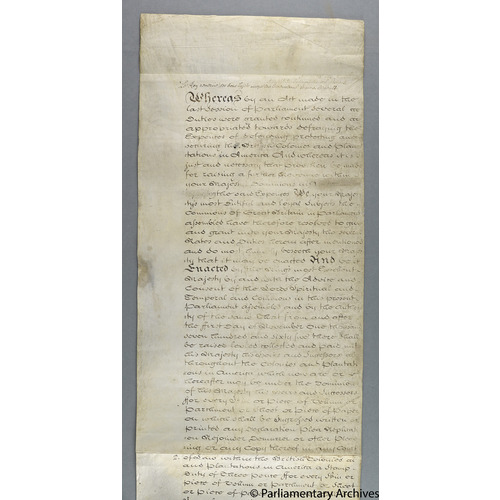 Whereas by an Act made in the
last Session of Parliament several
Duties were granted continued and
appropriated towards defraying the
Expences of defending protecting and
securing the British Colonies and Plan
tations in America And whereas it is
just and necessary that provision be made
for raising a further Revenue within
your Majestys Dominions in
the said Expences We your Majes
tys most Dutiful and loyal Subjects the
Commons of Great Britain in Parliament
assembled have therefore resolved to give
and grant unto your Majesty the several
Rates and Duties herein after mentioned
and do most humbly beseech your Majes
ty that it may be enacted And be it
Enacted by the Kings most Excellent
Majesty by and with the Advice and
Consent of the Lords Spiritual and
Temporal and Commons in this present
Parliament assembled and by the Autho
rity of the same That from and after
the first Day of November One thousand
seven hundred and sixty five there shall
be raised levied collected and paid unto
his Majesty his Heirs and Successors
throughout the Colonies and Plantat
ions in America which now are or
hereafter may be under the Dominion
of his Majesty his Heirs and Successors
ffor every Skin or Piece of Vellum or
Parchment or Sheet or Piece of Paper
on which shall be ingrossed written or
printed any Declaration Plea Replication
Rejoinder Demurrer or other Plead
ing or any Copy thereof in any Court
2. of Law within the British Colonies
and Plantations in America a Stamp
Duty of Three Pence ffor every Skin or
Piece of Vellum or Parchment or Sheet
or Piece of
© Parliamentary Archives